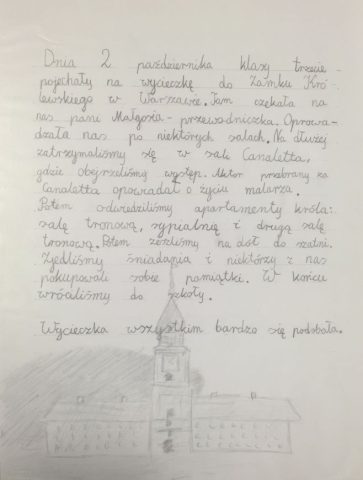 Dnia 2 października klasy trzecie
pojechały na wycieczkę do Zamku Kró-
lewskiego w Warszawie. Tam czekała na
nas pani Małgosia - przewodniczka. Oprowa-
dzała nas po niektórych salach. Na dłużej
zatrzymaliśmy się w sali Canaletta,
gdzie obejrzeliśmy występ. Aktor przebrany za
Canaletta opowiadał o życiu malarza.
Potem odwiedziliśmy apartamenty króla:
salę tronową, sypialnię i drugą salę
tronową. Potem zeszliśmy na dół do szatni.
Zjedliśmy śniadania i niektórzy z nas
pokupowali sobie pamiątki. W końcu
wróciliśmy do szkoły.
Wycieczka wszystkim bardzo się podobała.